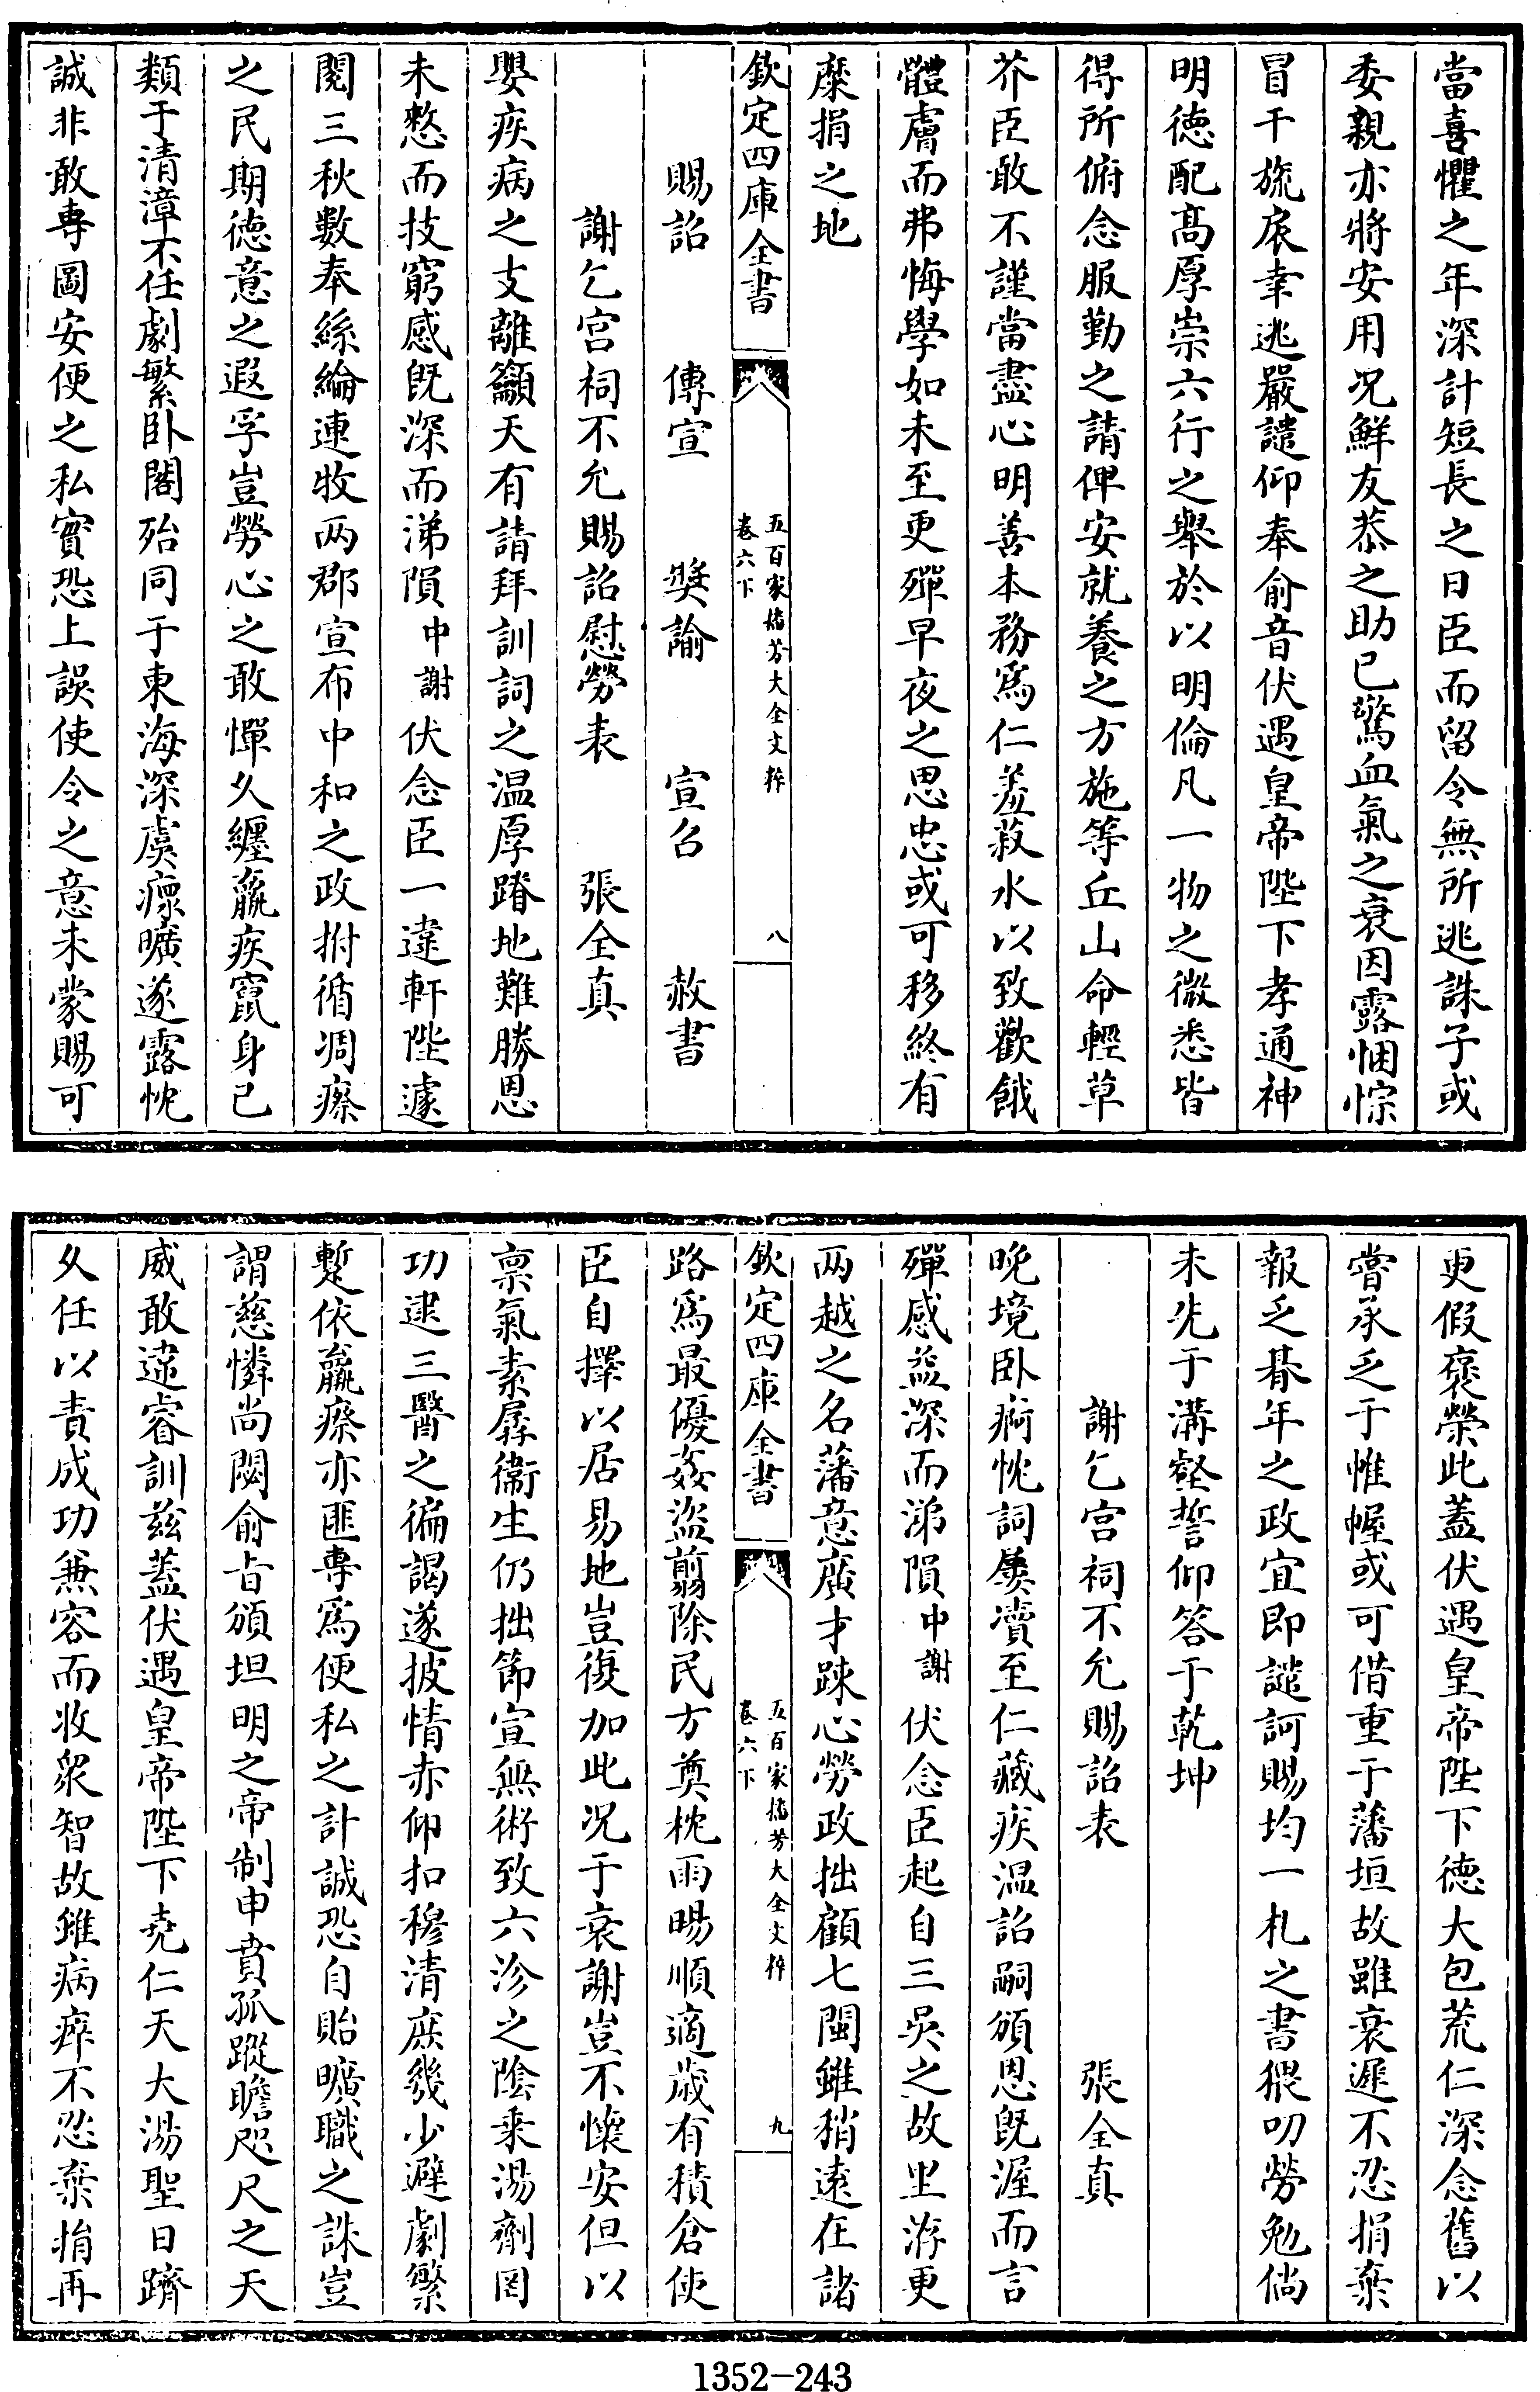 當喜懼之年深計短長之日臣而留令無所逃誅子或
委親亦將安用况鮮友恭之助已驚血氣之衰因露悃悰
冒干旒扆幸逃嚴譴仰奉俞音伏遇皇帝陛下孝通神
明德配髙厚崇六行之舉於以明倫凡一物之微悉皆
得所俯念服勤之請俾安就養之方施等丘山命輕草
芥臣敢不謹當盡心明善本務為仁羞菽水以致歡餓
體膚而弗悔學如未至更殫早夜之思忠或可移終有
糜捐之地
欽定四庫全書
五百家播芳大全文粹
卷六下
八
賜詔　傳宣　奬諭　宣召　赦書
謝乞宫祠不允賜詔慰勞表　張全真
嬰疾病之支離籲天有請拜訓詞之温厚蹐地難勝恩
未憗而技窮感既深而涕隕中謝伏念臣一違軒陛遽
閱三秋數奉絲綸連牧兩郡宣布中和之政拊循凋瘵
之民期德意之遐孚豈勞心之敢憚久纏羸疾竄身已
類于清漳不任劇繁卧閣殆同于東海深虞瘝曠遂露忱
誠非敢専圖安便之私實恐上誤使令之意未蒙賜可
更假褒榮此蓋伏遇皇帝陛下德大包荒仁深念舊以
嘗承乏于帷幄或可借重于藩垣故雖衰遲不忍捐棄
報乏朞年之政宜即譴訶賜均一札之書猥叨勞勉倘
未先于溝壑誓仰答于乾坤
謝乞宫祠不允賜詔表　張全真
晚境卧痾忱詞屢凟至仁藏疾温詔嗣頒恩既渥而言
殫感益深而涕隕中謝伏念臣起自三吳之故里洊更
兩越之名藩意廣才踈心勞政拙顧七閩雖稍逺在諸
欽定四庫全書
五百家播芳大全文粹
卷六下
九
路為最優姦盜翦除民方奠枕雨暘順適歲有積倉使
臣自擇以居易地豈復加此况于衰謝豈不懷安但以
禀氣素孱衞生仍拙節宣無術致六沴之陰乘湯劑罔
功逮三醫之徧謁遂披情赤仰扣穆清庶幾少避劇繁
蹔依羸瘵亦匪専為便私之計誠恐自貽曠職之誅豈
謂慈憐尚閟俞㫖頒坦明之帝制申賁孤蹤瞻咫尺之天
威敢違睿訓兹蓋伏遇皇帝陛下堯仁天大湯聖日躋
久任以責成功兼容而收衆智故雖病瘁不忍棄捐再
1352-243